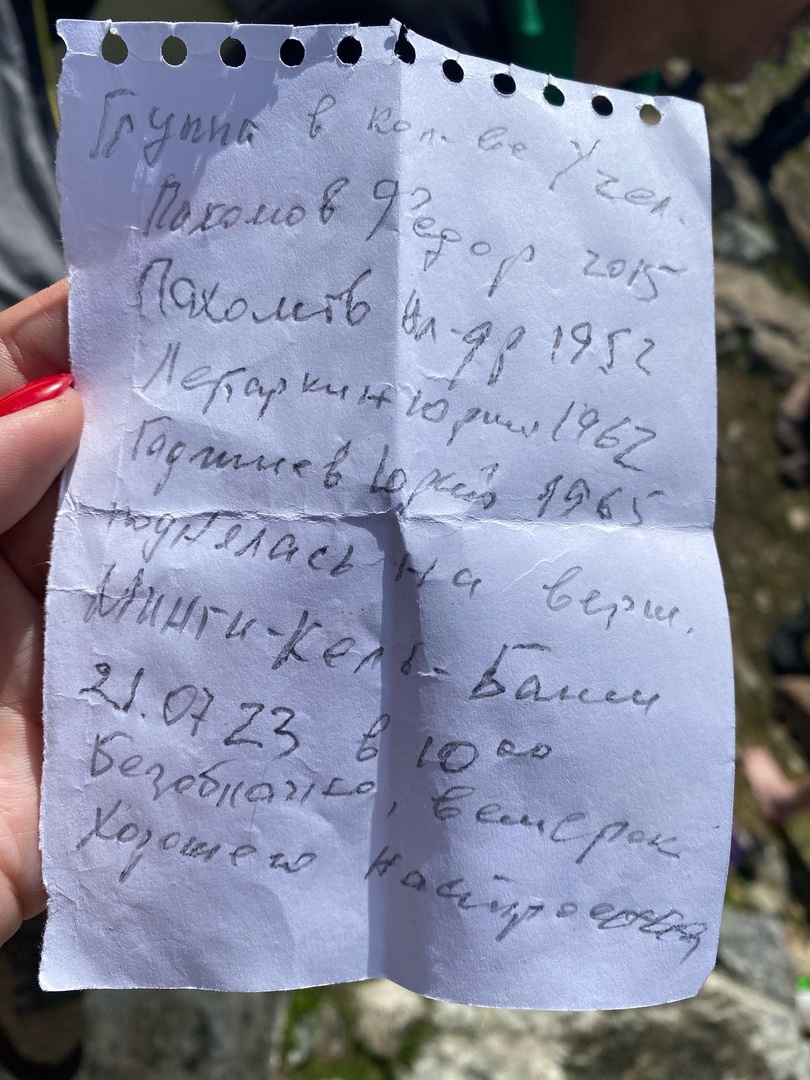 Группа в кол-ве 4 чел.
Пахомов Федор 2015
Пахомов Ал-др 1952
Юрий 1962
Юрий 1965
поднялась на верш.
Минги-Кель-Баши
21.07.23 в 10 00
Безоблачно, ветерок
Хорошего настроения